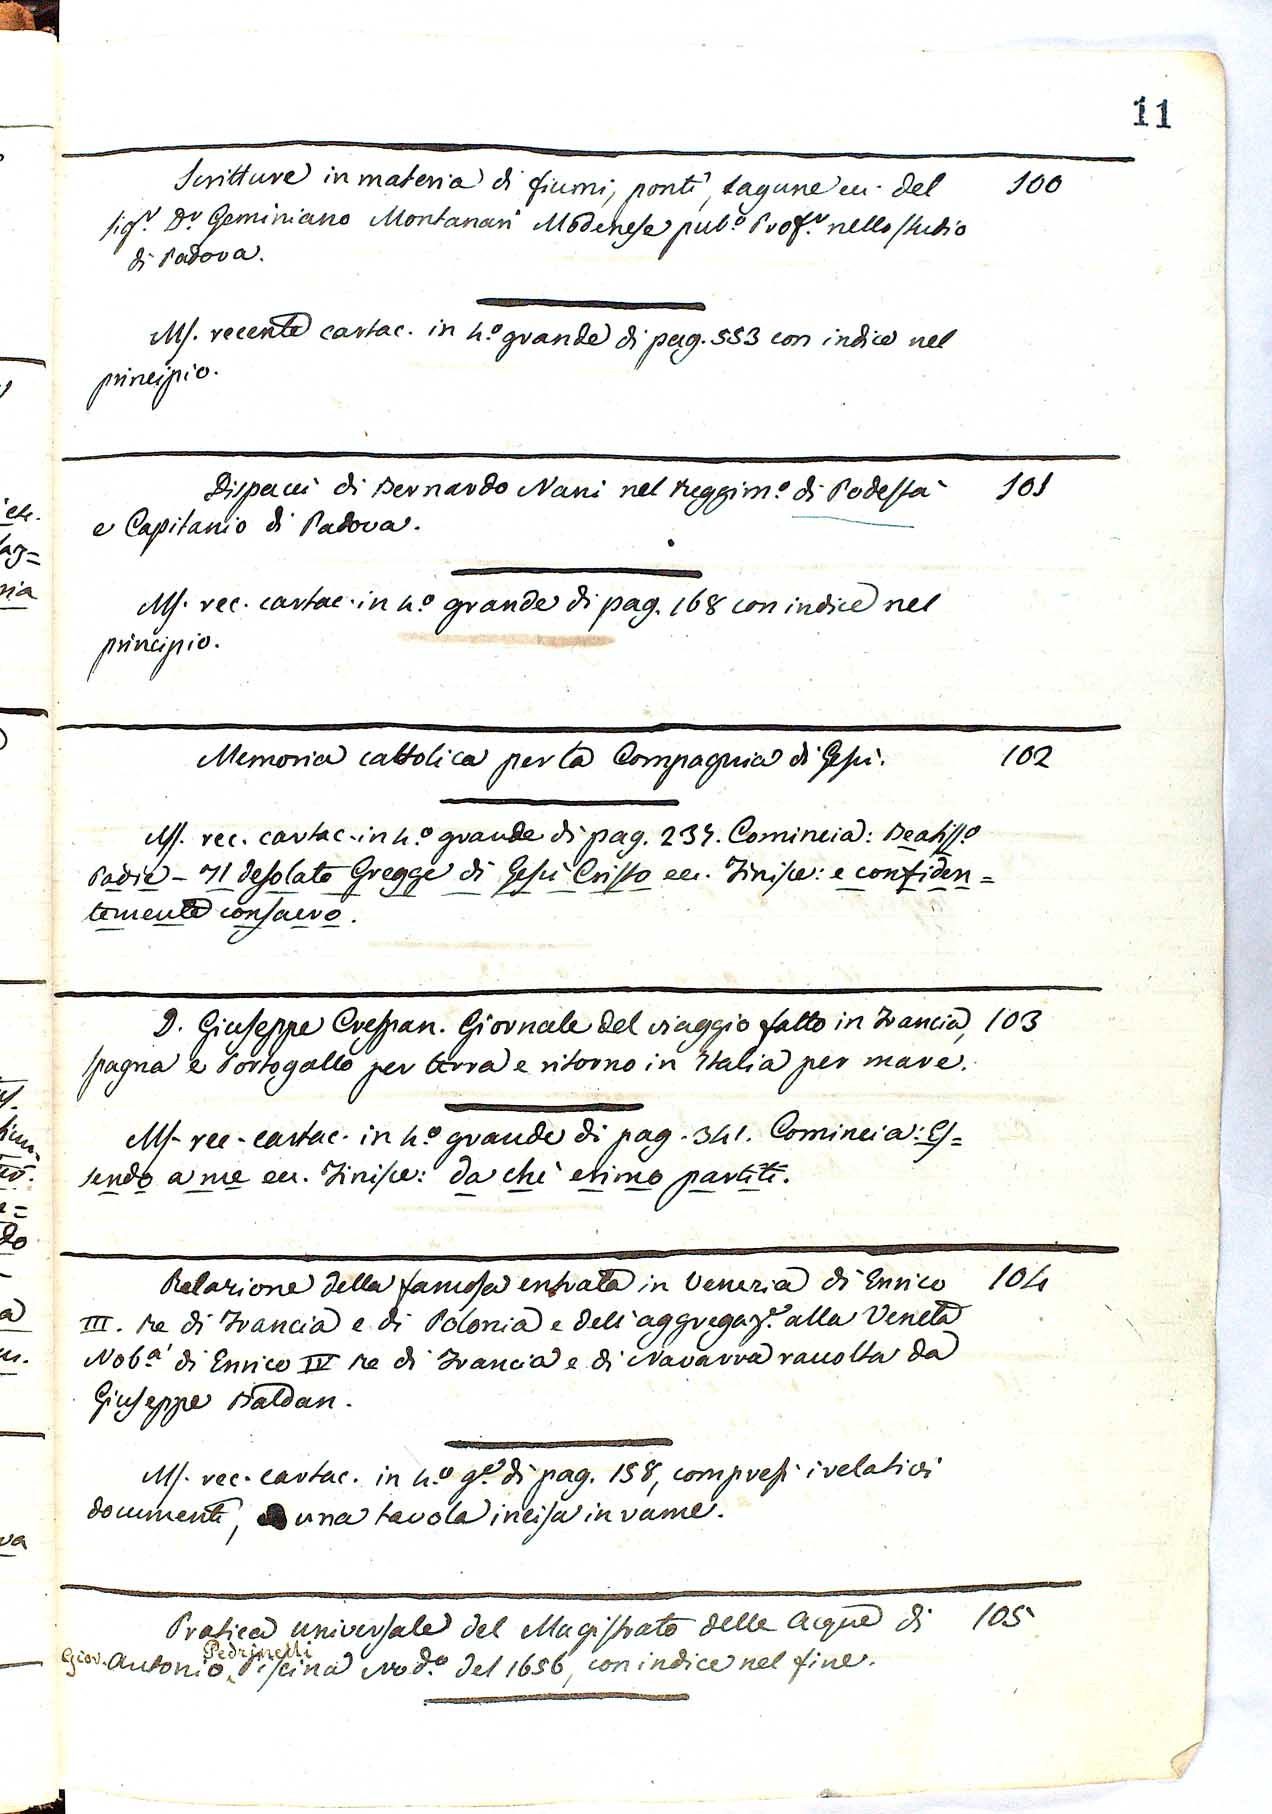 11
Scritture in materia di fiumi, ponti, lagune ec. del 100
sigr. Dr Geminiano Montanari Modenese pubo. Profr. nello studio
di Padova.
Ms. recente cartac. in 4.o grande di pag. 553 con indice nel
principio.
Dispacci di Bernardo Nani nel Reggimo. di Podestà 101
e Capitanio di Padova.
Ms. rec. cartac. in 4.o grande di pag. 168 con indice nel
principio.
Memoria cattolica per la Compagnia di Gesù. 102
Ms. rec. cartac. in 4.o grande di pag. 234. Comincia: Beatisso
Padre - Il desolato Gregge di Gesù Cristo ec. Finisce: e confiden=
temente consacro.
D. Giuseppe Crespan. Giornale del viaggio fatto in Francia, 103
Spagna e Portogallo per terra e ritorno in Italia per mare.
Ms. rec. cartac. in 4.o grande di pag. 341. Comincia: Es=
sendo a me ec. Finisce: da chi erimo partiti.
Relazione della famosa entrata in Venezia di Enrico 104
III. re di Francia e di Polonia e dell'aggregaz.e alla Veneta
Nob.à di Enrico IV re di Francia e di Navarra raccolta da
Giuseppe Baldan.
Ms. rec. cartac. in 4.o g.e di pag. 158, compresi i relativi
documenti, una tavola incisa in rame.
Pratica universale del Magistrato delle Acque di 105
Pedrinelli
Giov. Antonio Piscina Nod.o del 1656, con indice nel fine.